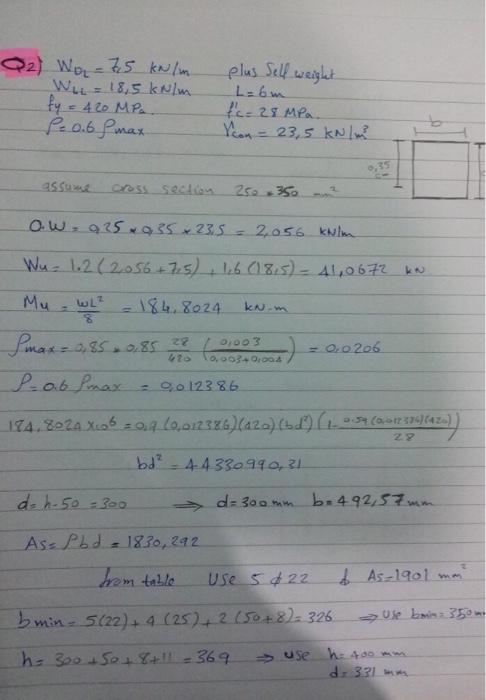 Q2) W_DL = 7,5 kN/m plus Self weight
W_LL = 18,5 kN/m L = 6m
fy = 420 MPa. f'c = 28 MPa.
ρ = 0.6 ρmax γcon = 23,5 kN/m³
b
0,35
assume cross section 250 * 350 mm²
O.W = 0,25 * 0,35 * 23,5 = 2,056 kN/m
Wu = 1.2 (2,056 + 7,5) + 1,6 (18,5) = 41,0672 kN
Mu = wL²/8 = 184,8024 kN-m
ρmax = 0,85 * 0,85 28/420 (0,003/0,003+0,004) = 0,0206
ρ = 0.6 ρmax = 0,012386
184,8024 x10⁶ = 0,9 (0,012386)(420)(bd²)(1 - 0.59 (0,012386)(420)/28)
bd² = 44330990,31
d = h - 50 = 300 ⇒ d = 300 mm b = 492,57 mm
As = ρbd = 1830,292
from table USE 5 ϕ 22 & As = 1901 mm²
bmin = 5(22) + 4(25) + 2(50+8) = 326 ⇒ Use bmin = 350 m
h = 300 + 50 + 8 + 11 = 369 ⇒ use h = 400 mm
d = 331 mm